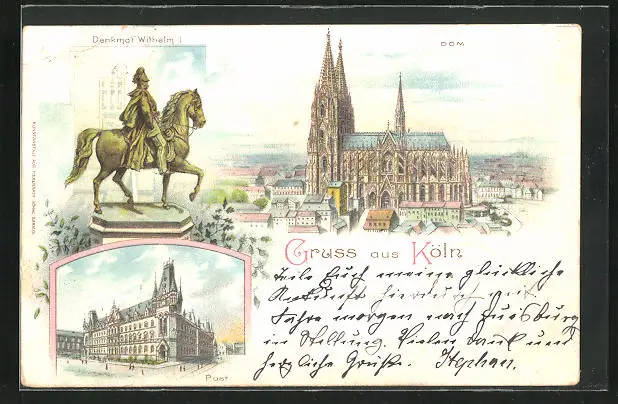 Denkmal Wilhelm I
DOM
Gruss aus Köln
Post
Teile Euch meine glückliche
Ankunft hierdurch mit
Fahre morgen nach Duisburg
in Stellung. Vielen Dank und
herzliche Grüße. Stephan.